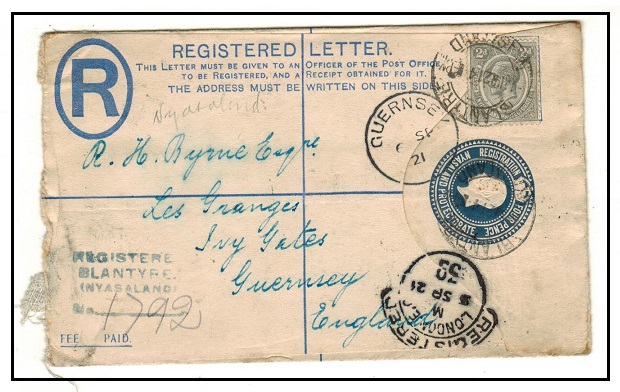 REGISTERED LETTER.
THIS LETTER MUST BE GIVEN TO AN OFFICER OF THE POST OFFICE
TO BE REGISTERED, AND A RECEIPT OBTAINED FOR IT.
THE ADDRESS MUST BE WRITTEN ON THIS SIDE.
R
Nyasaland.
2d
GUERNSEY
SP
9
21
R. H. Byrne Esqre.
Les Granges
Ivy Gates
Guernsey
England
NYASALAND PROTECTORATE
REGISTRATION FOUR PENCE
REGISTERE
BLANTYRE.
(NYASALAND)
No. 1792
FEE PAID.
REGISTERED
LONDON
M
SP 21